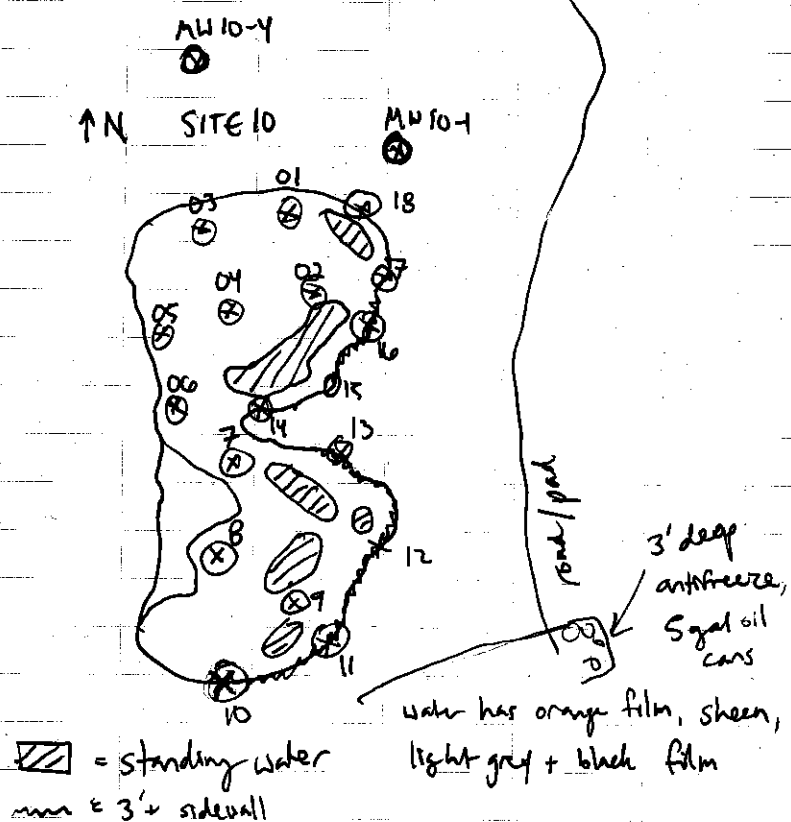 MW 10-4
↑N SITE 10
MW 10-1
01
03
18
17
02
04
05
16
06
15
14
13
7
8
12
9
11
10
road/pad
3' deep
antifreeze,
5 gal oil
cans
water has orange film, sheen,
light grey + black film
= standing water
= 3'+ sidewall